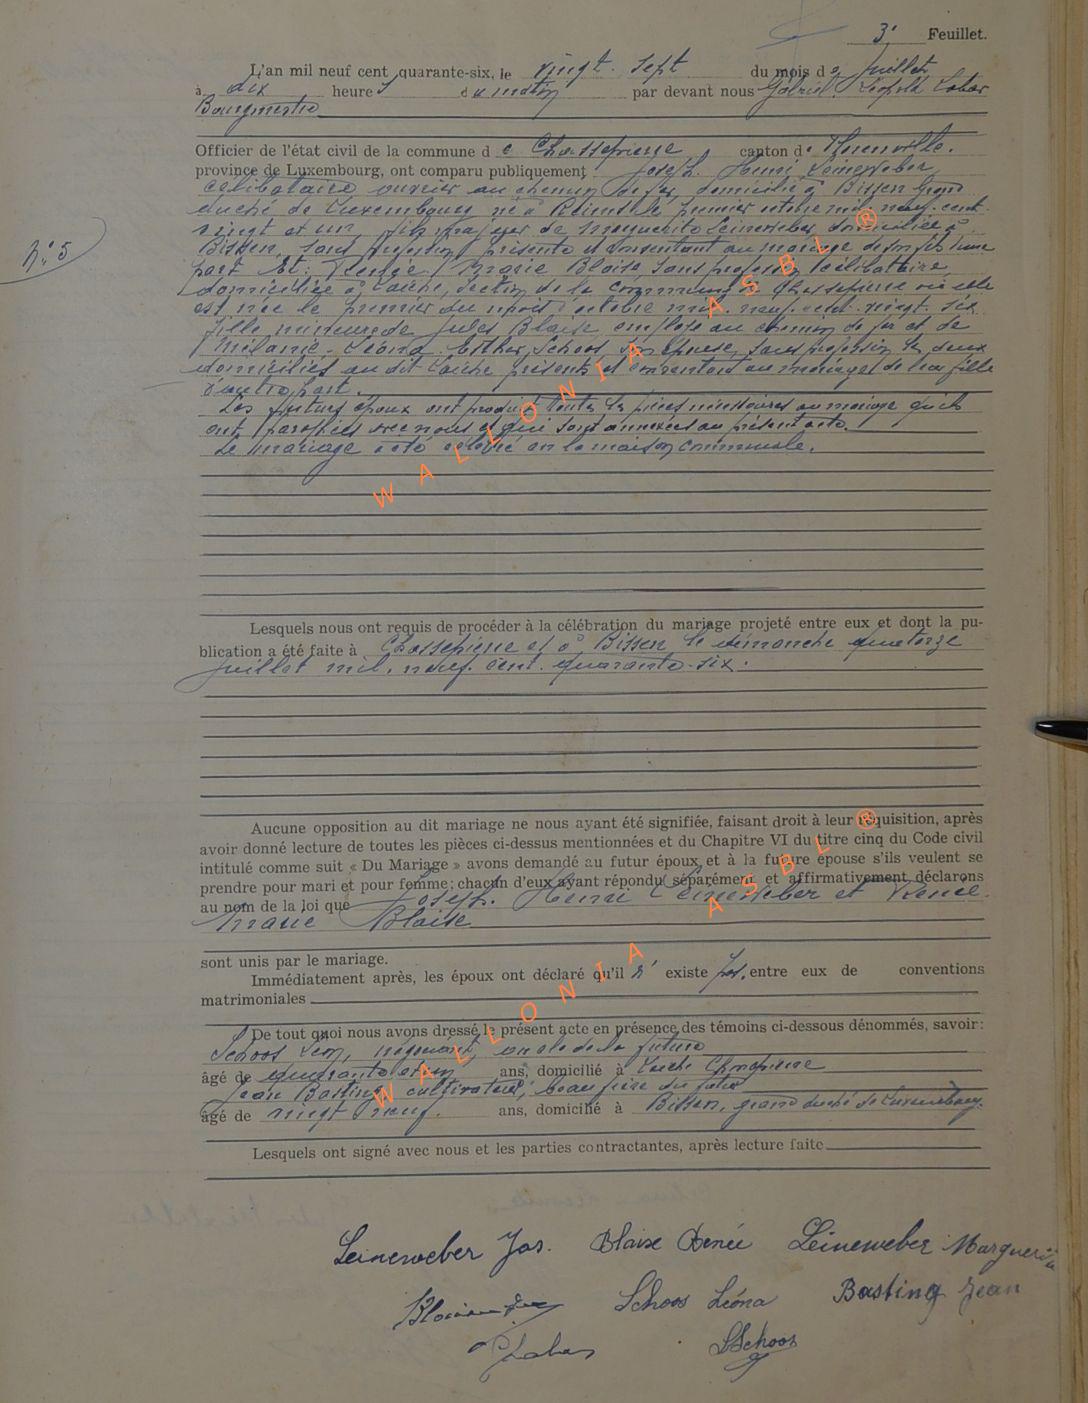 3e Feuillet.
L'an mil neuf cent quarante-six, le vingt-sept du mois de Juillet
à dix heures du matin par devant nous Gabriel Léopold
Bourgmestre
Officier de l'état civil de la commune de Chassepierre canton de
province de Luxembourg, ont comparu publiquement Joseph Henri Leineweber
célibataire ouvrier au chemin de fer, domicilié à Bissen Grand
duché de Luxembourg né à Reims le premier octobre mil neuf cent
N° 5
vingt et un fils majeur de Marguerite Leineweber domiciliée à
Bissen, sans profession présente et consentant au mariage de son fils d'une
part Et: Renée Marie Blaise sans profession célibataire
domiciliée à Laiche, section de la commune de Chassepierre où elle
est née le premier du mois d'octobre mil neuf cent vingt six
fille mineure de Jules Blaise employé au chemin de fer et de
Mélanie Léona Esther Schoos son épouse, sans profession les deux
domiciliés au dit Laiche présents et consentant au mariage de leur fille
d'autre part.
Les futurs époux ont produit toutes les pièces nécessaires au mariage qu'ils
ont paraphées avec nous et qui sont annexées au présent acte.
Le mariage a été célébré en la maison communale.
Lesquels nous ont requis de procéder à la célébration du mariage projeté entre eux et dont la pu-
blication a été faite à Chassepierre et à Bissen le dimanche quatorze
juillet mil neuf cent quarante-six.
Aucune opposition au dit mariage ne nous ayant été signifiée, faisant droit à leur réquisition, après
avoir donné lecture de toutes les pièces ci-dessus mentionnées et du Chapitre VI du titre cinq du Code civil
intitulé comme suit « Du Mariage » avons demandé au futur époux et à la future épouse s'ils veulent se
prendre pour mari et pour femme; chacun d'eux ayant répondu séparément et affirmativement, déclarons
au nom de la loi que Joseph Henri Leineweber et Renée
Marie Blaise
sont unis par le mariage.
Immédiatement après, les époux ont déclaré qu'il n' existe pas entre eux de conventions
matrimoniales
De tout quoi nous avons dressé le présent acte en présence des témoins ci-dessous dénommés, savoir:
Schoos Léon, négociant, oncle de la future
âgé de quarante et un ans, domicilié à Laiche Chassepierre
Jean Basting cultivateur, beau frère du futur
âgé de vingt neuf. ans, domicilié à Bissen, grand duché de Luxembourg.
Lesquels ont signé avec nous et les parties contractantes, après lecture faite
Leineweber Jos. Blaise Renée Leineweber Marguerite
Schoos Léona Basting Jean
LSchoos
WALLONIA ASBL ®
WALLONIA ASBL ®